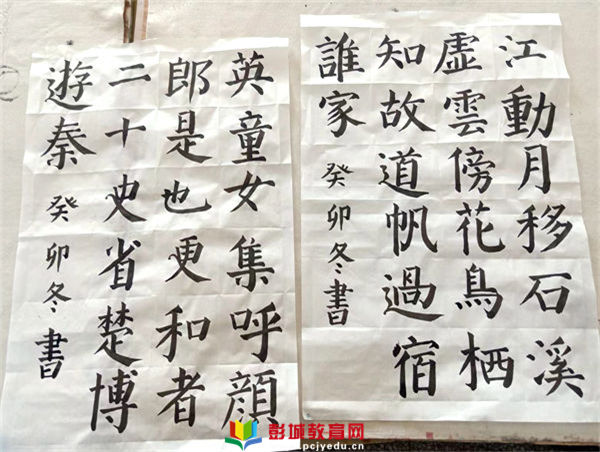 江動月移石溪
虛雲傍花鳥栖
知故道帆過宿
誰家 癸卯冬書
英童女集呼顔
郎是也更和者
二十史省楚博
遊秦 癸卯冬書
彭城教育网
pcjyedu.cn